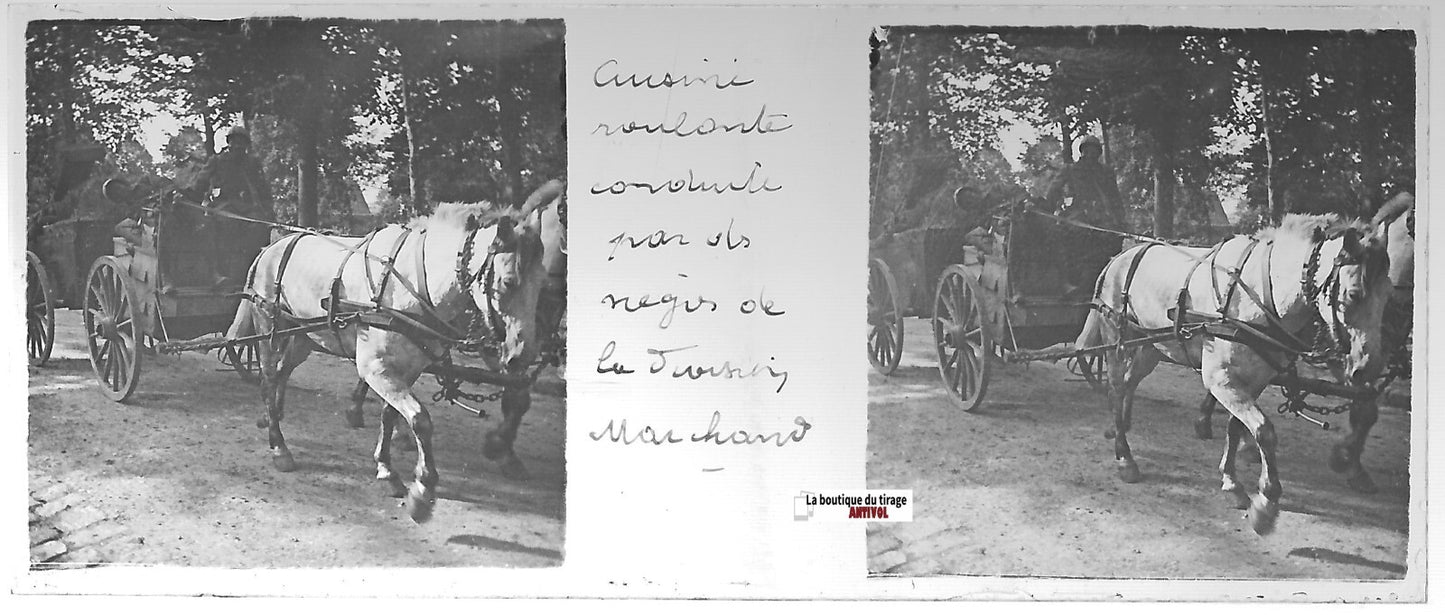 Cuisine
roulante
conduite
par des
nègres de
la Division
Marchand
La boutique du tirage
ANTIVOL